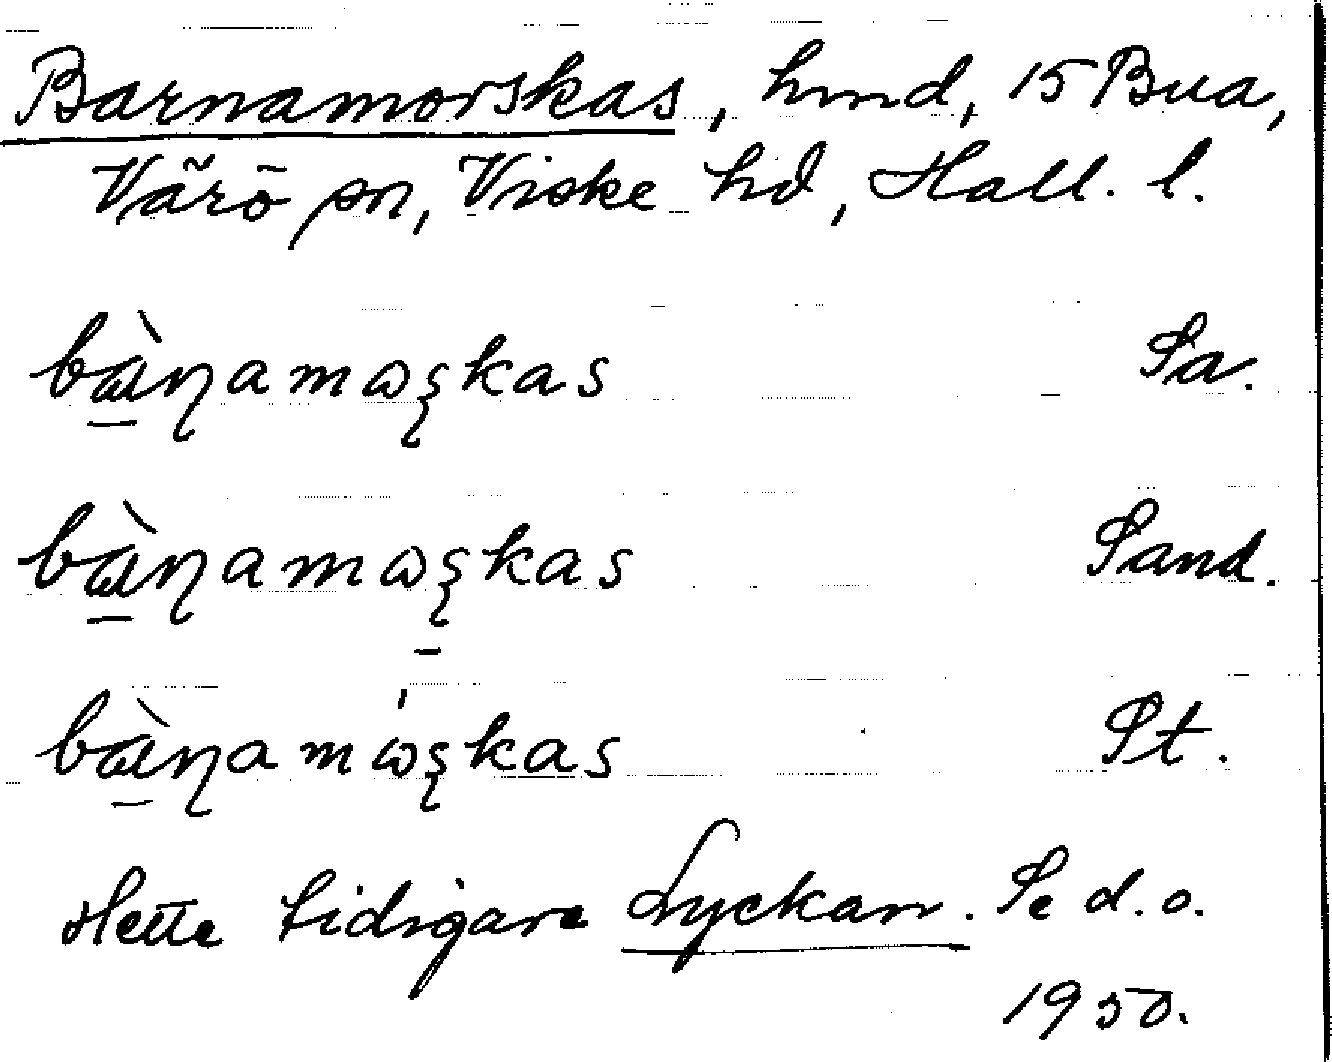 Barnamorskas, hmd, 15 Bua,
Värö sn, Viske hd, Hall. l.
bàɳamɷʂkas Sa.
bàɳamɷʂkas Sand.
bàɳamɷʂkas St.
Hette tidigare Lyckan. Se d.o.
1950.